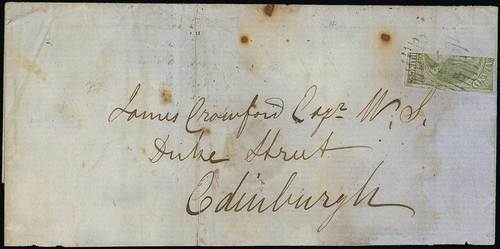 James Crawford Esqr. W.S.
Duke Street
Edinburgh